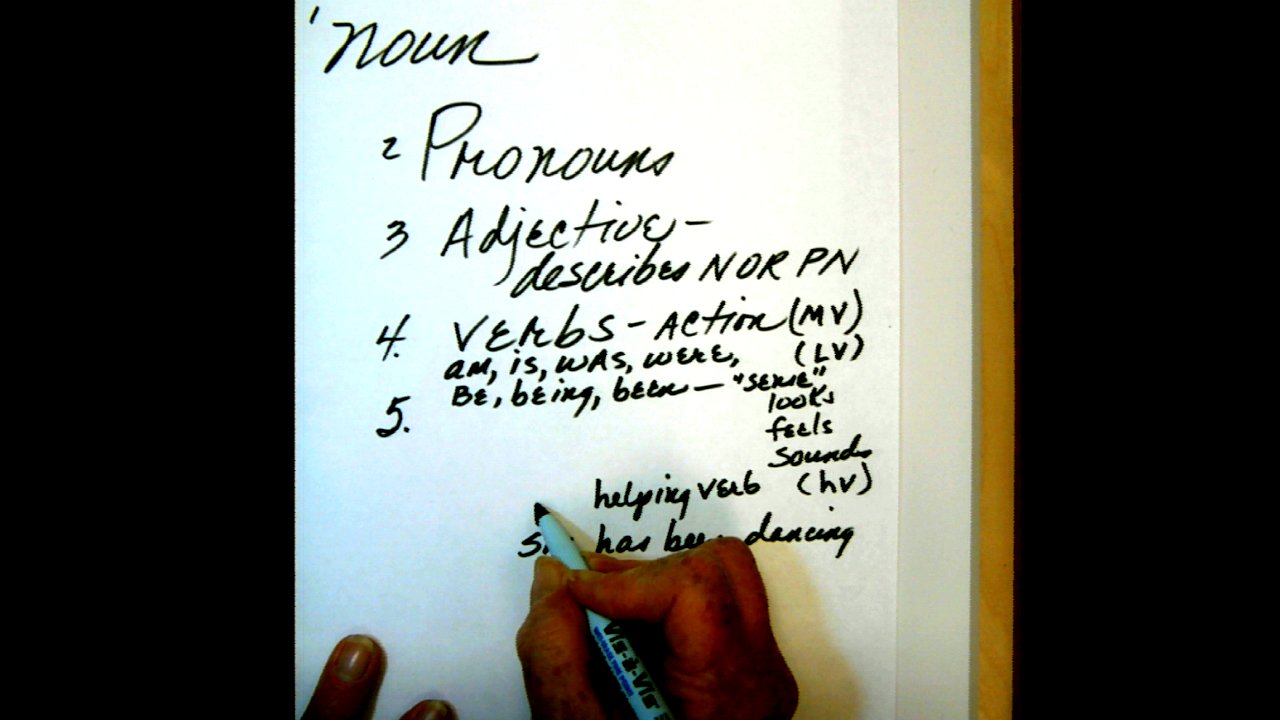 1 noun
2 Pronouns
3 Adjective -
describes N OR PN
4. VERbS - ACtiON (MV)
am, is, WAS, WERE, (LV)
BE, bEing, bEEn - "SENSE"
looks
5.
feels
Sounds
helping VErb (hV)
has been dancing
VIS-à-VIS